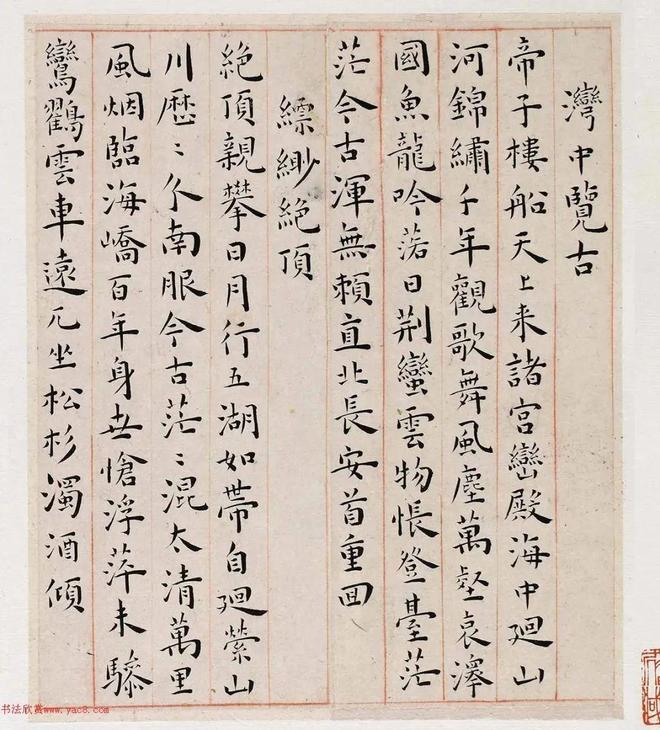 灣中覽古
帝子樓船天上来諸宮巒殿海中廻山
河錦繡千年觀歌舞風塵萬壑哀澤
國魚龍吟落日荆蠻雲物悵登臺茫
茫今古渾無賴直北長安首重回
縹緲絶頂
絶頂親攀日月行五湖如帶自廻縈山
川歷〻介南服今古茫〻混太清萬里
風烟臨海嶠百年身世愴浮萍未驂
鸞鶴雲車遠兀坐松杉濁酒傾
书法欣赏www.yac8.com